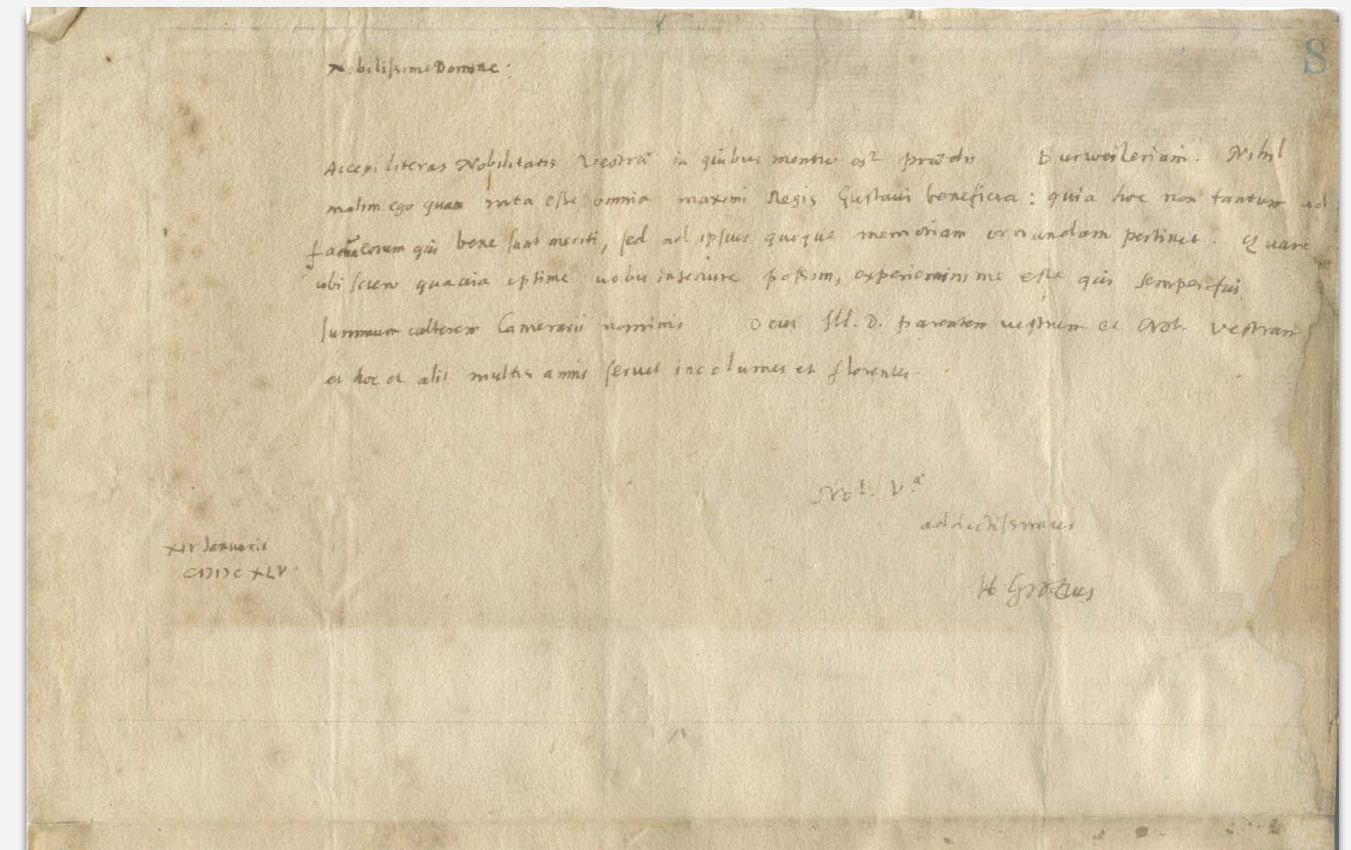 8
Nobilissime Domine:
Accepi literas Nobilitatis Vestrae in quibus mentio est praedii Burweileriani. Nihil
malim ego quam rata esse omnia maximi Regis Gustavi beneficia: quia hoc non tantum ad
eorum qui bene sunt meriti, sed ad ipsius quoque memoriam ornandam pertinet. Quare
ubi sciero qua in re optime vobis inservire possim, experiemini me esse qui semper fui
summum cultorem Camerarii nominis Deus Ill. D. parentem vestrum et Nob. Vestram
et hoc et aliis multis annis servet incolumes et florentes
Nob. Vae
addictissimus
H Grotius
Januarii
CIↃIↃCXLV.